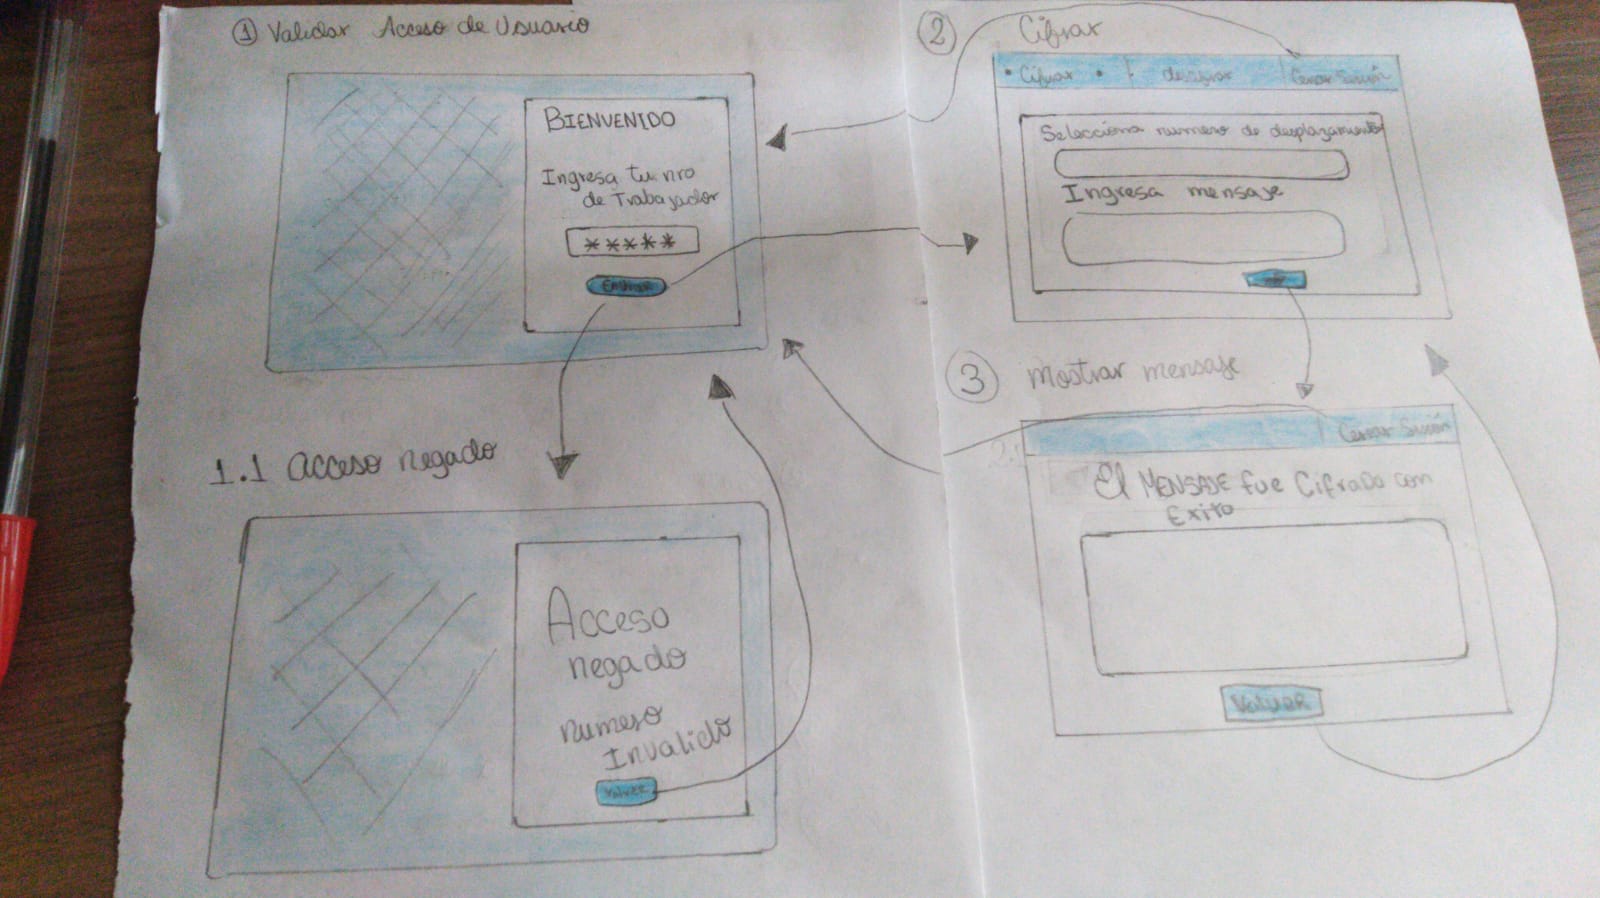 1 Validar Acceso de Usuario
BIENVENIDO
Ingresa tu nro
de Trabajador
*****
Enviar
1.1 Acceso negado
Acceso
negado
numero
Invalido
Volver
2 Cifrar
Cifrar
descifrar
Cerrar Sesión
Selecciona numero de desplazamiento
Ingresa mensaje
3 Mostrar mensaje
Cerrar Sesión
El MENSAJE fue Cifrado con
Exito
Volver